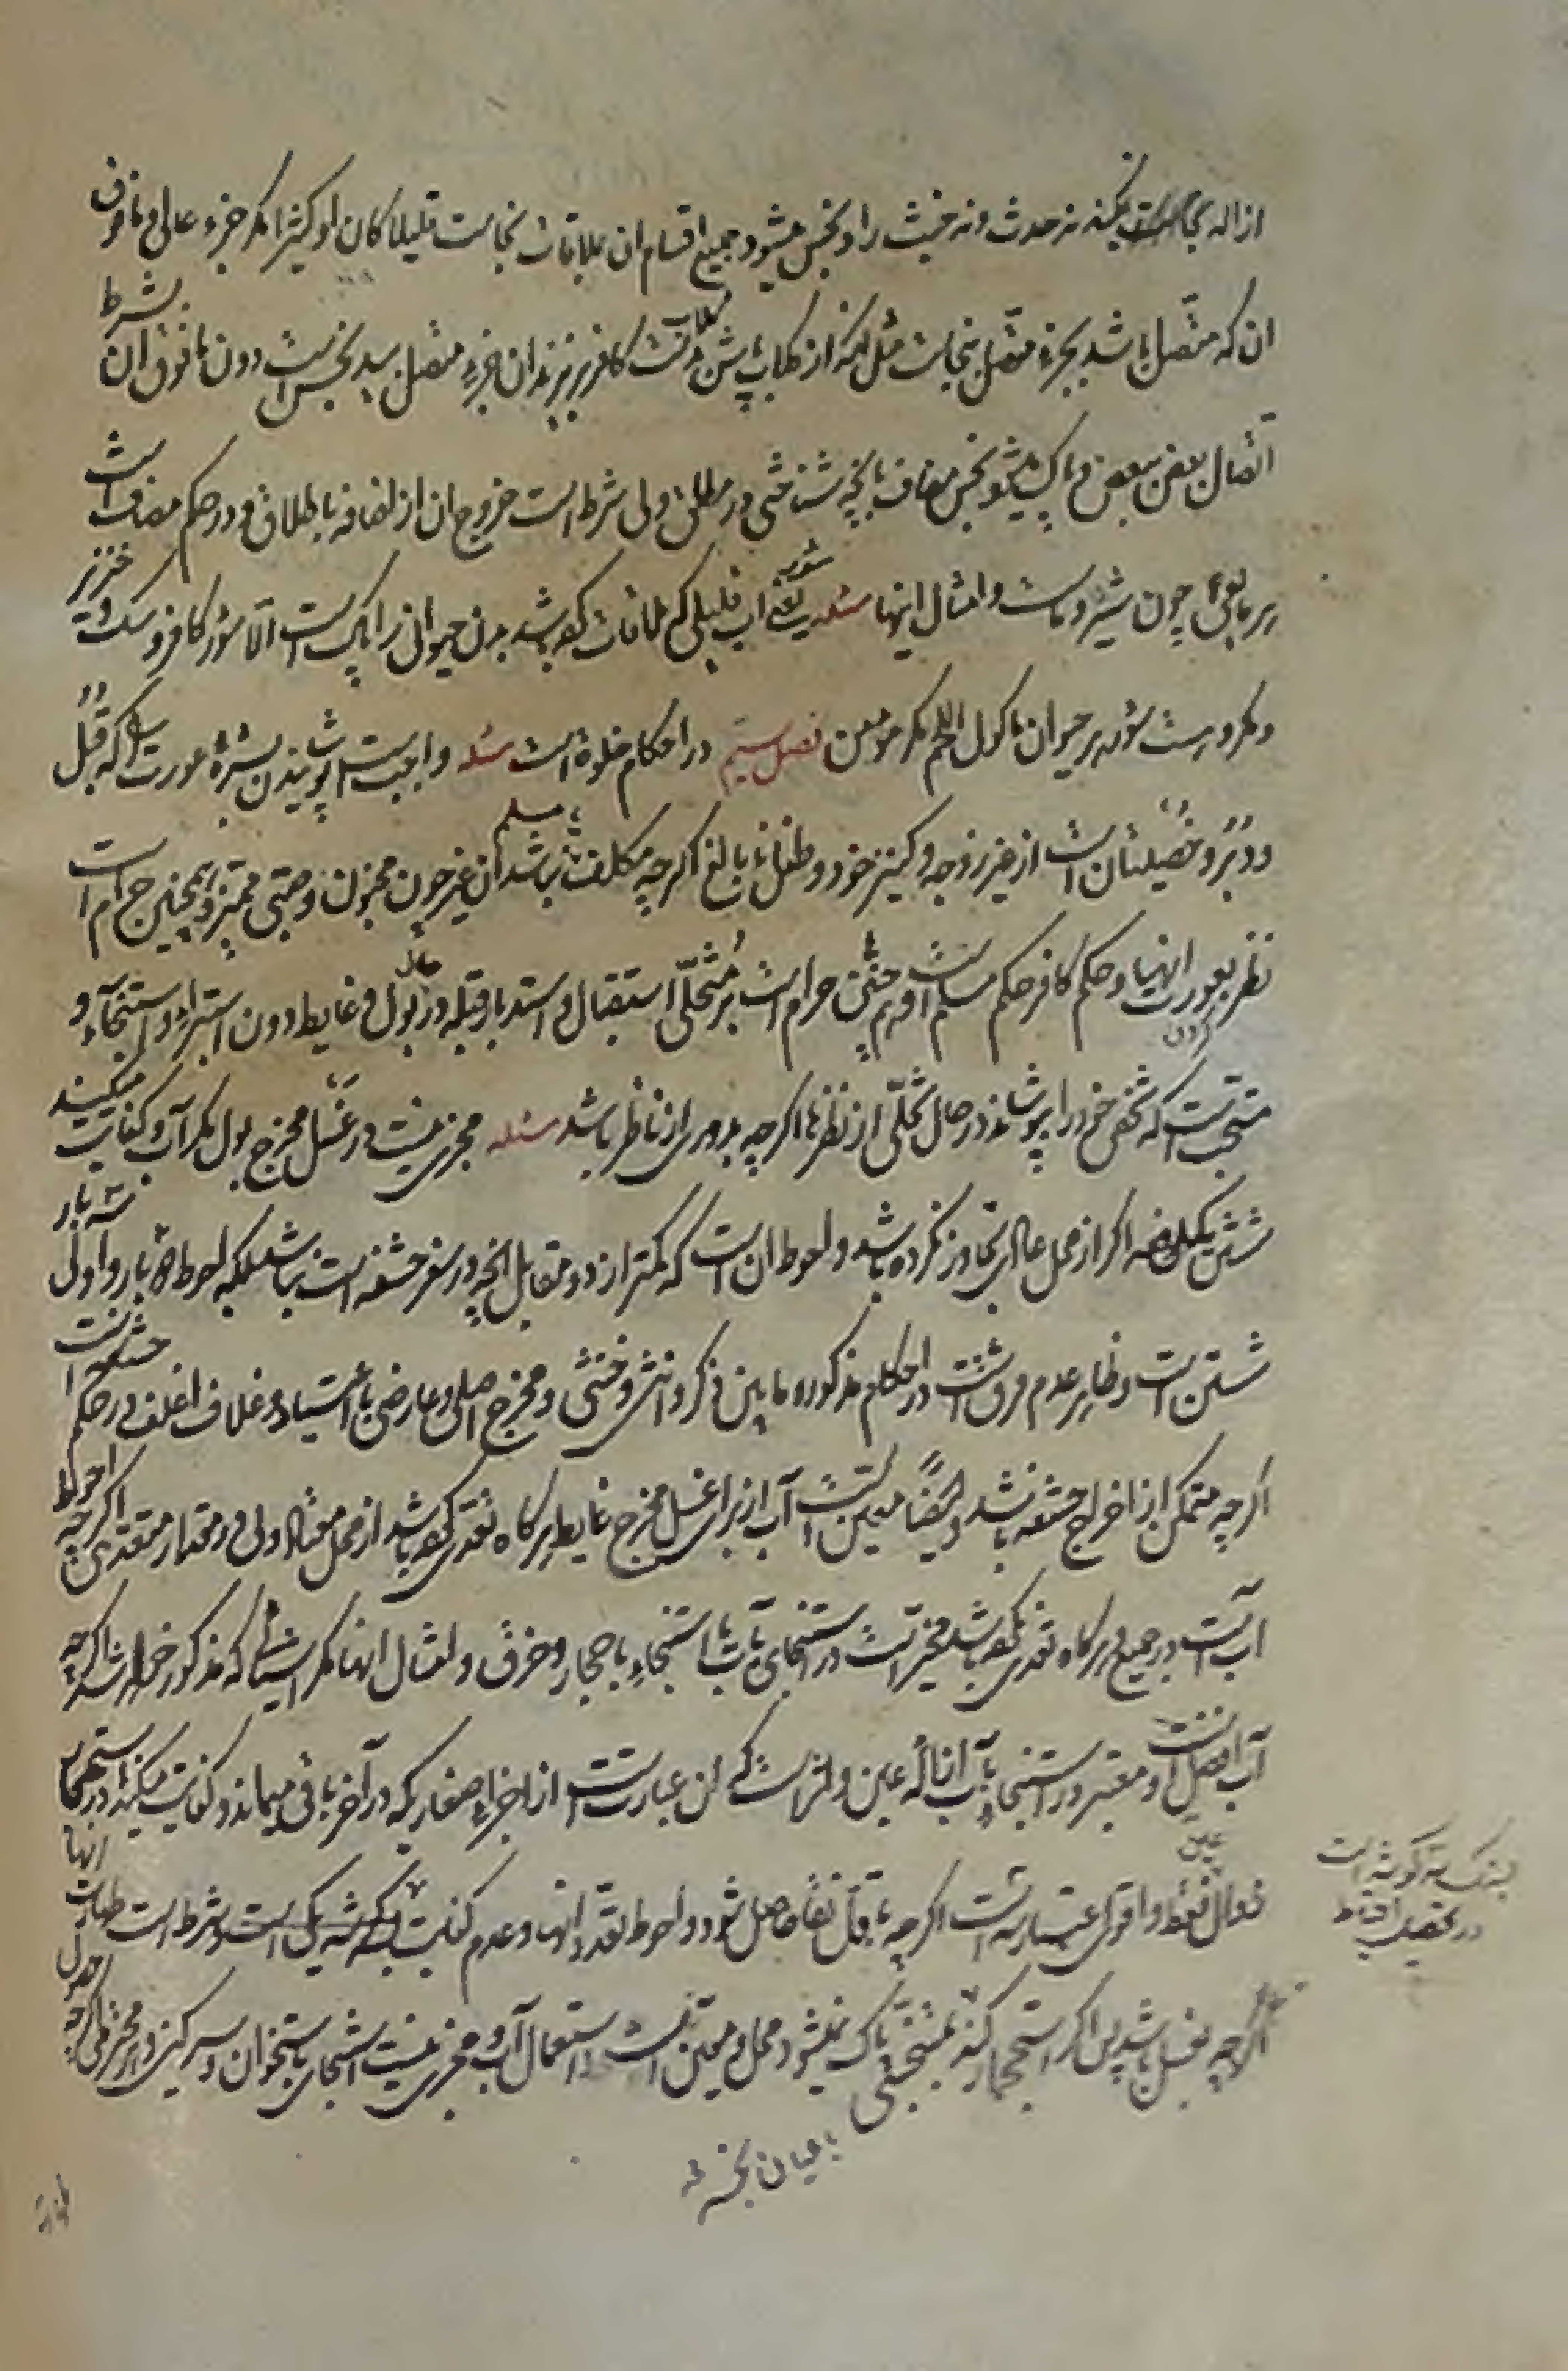 ازاله نجاست نمیکند نه حدث و نه خبث را و نجس میشود جمیع اقسام ان بملاقات نجاست قلیلا کان او کثیرا مگر جزء عالی و مافوق
ان که متصل باشد بجزء متصل بنجاست مثل آنکه از گلاب پاش گلاب بدست کافر بریزند ان جزء متصل بید نجس است دون مافوق ان بشرط
اتصال بعض ببعض و پاک میشود نجس مضاف بانچه شناختی در مطلق ولی شرط است خروج ان از اضافه باطلاق و در حکم مضاف است
هر مایعی چون شیر و ماست و امثال اینها مسئله سؤر یعنی اب قلیلی که ملاقات کرده باشد بدن حیوان را پاک است الا سؤر کافر و سگ و خنزیر
و مکروه است سؤر هر حیوان ماکول اللحم مگر مؤمن فصل سیم در احکام خلوة است مسئله واجب است پوشیدن بشرهٔ عورت را که قبل
و دبر و خصیتان است از غیر زوجه و کنیز خود و طفل نابالغ اگرچه مکلف یا مسلم نباشد ان غیر چون مجنون و صبی ممیز و همچنین حرام است
نظر کردن بعورت اینها و حکم کافر حکم مسلم است و حرام است بر متخلی استقبال و استدبار قبله در حال بول و غایط دون استبراء و استنجاء و
مستحب است که شخص خود را بپوشاند در حال تخلی از نظرها اگرچه بدوری از ناظر باشد مسئله مجزی نیست در غسل مخرج بول مگر آب و کفایت میکند
شستن یکدفعه اگر از محل عادی تجاوز نکرده باشد و احوط ان است که کمتر از دو مقابل انچه در سر حشفه است نباشد بلکه احوط دو بار و اولی سه بار
شستن است و ظاهر عدم فرق است در احکام مذکوره مابین ذکر و انثی و خنثی و مخرج اصلی و عارضی با اعتیاد و غلاف اغلف در حکم حشفه است
اگرچه متمکن از اخراج حشفه باشد و ایضا معین است آب از برای غسل مخرج غایط هرگاه تعدی کرده باشد از محل معتاد ولی در مقدار متعدی اگرچه احوط
اب است در جمیع و هرگاه تعدی نکرده باشد مخیر است در استنجای بآب یا استنجاء باحجار و خرق و امثال اینها مگر اشیائی که مذکور خواهد شد اگرچه
آب افضل است و معتبر در استنجاء بآب ازالهٔ عین و اثر است که ان عبارت است از اجزاء صغاریکه در آخر باقی میماند و کفایت میکند در استجمار
زوال عین فقط و اقوی اعتبار سه است اگرچه باقل نقا حاصل شود و احوط تعدد انها و عدم کفایت بسه گوشه یک است و شرط است طهارت انها
اگرچه بغسل باشد پس اگر استجمار کند بمتنجس پاک نمیشود محل و معین است استعمال آب و مجزی نیست استنجای باستخوان و سرگین و محترم اگرچه
بسنگ سه گوشه است